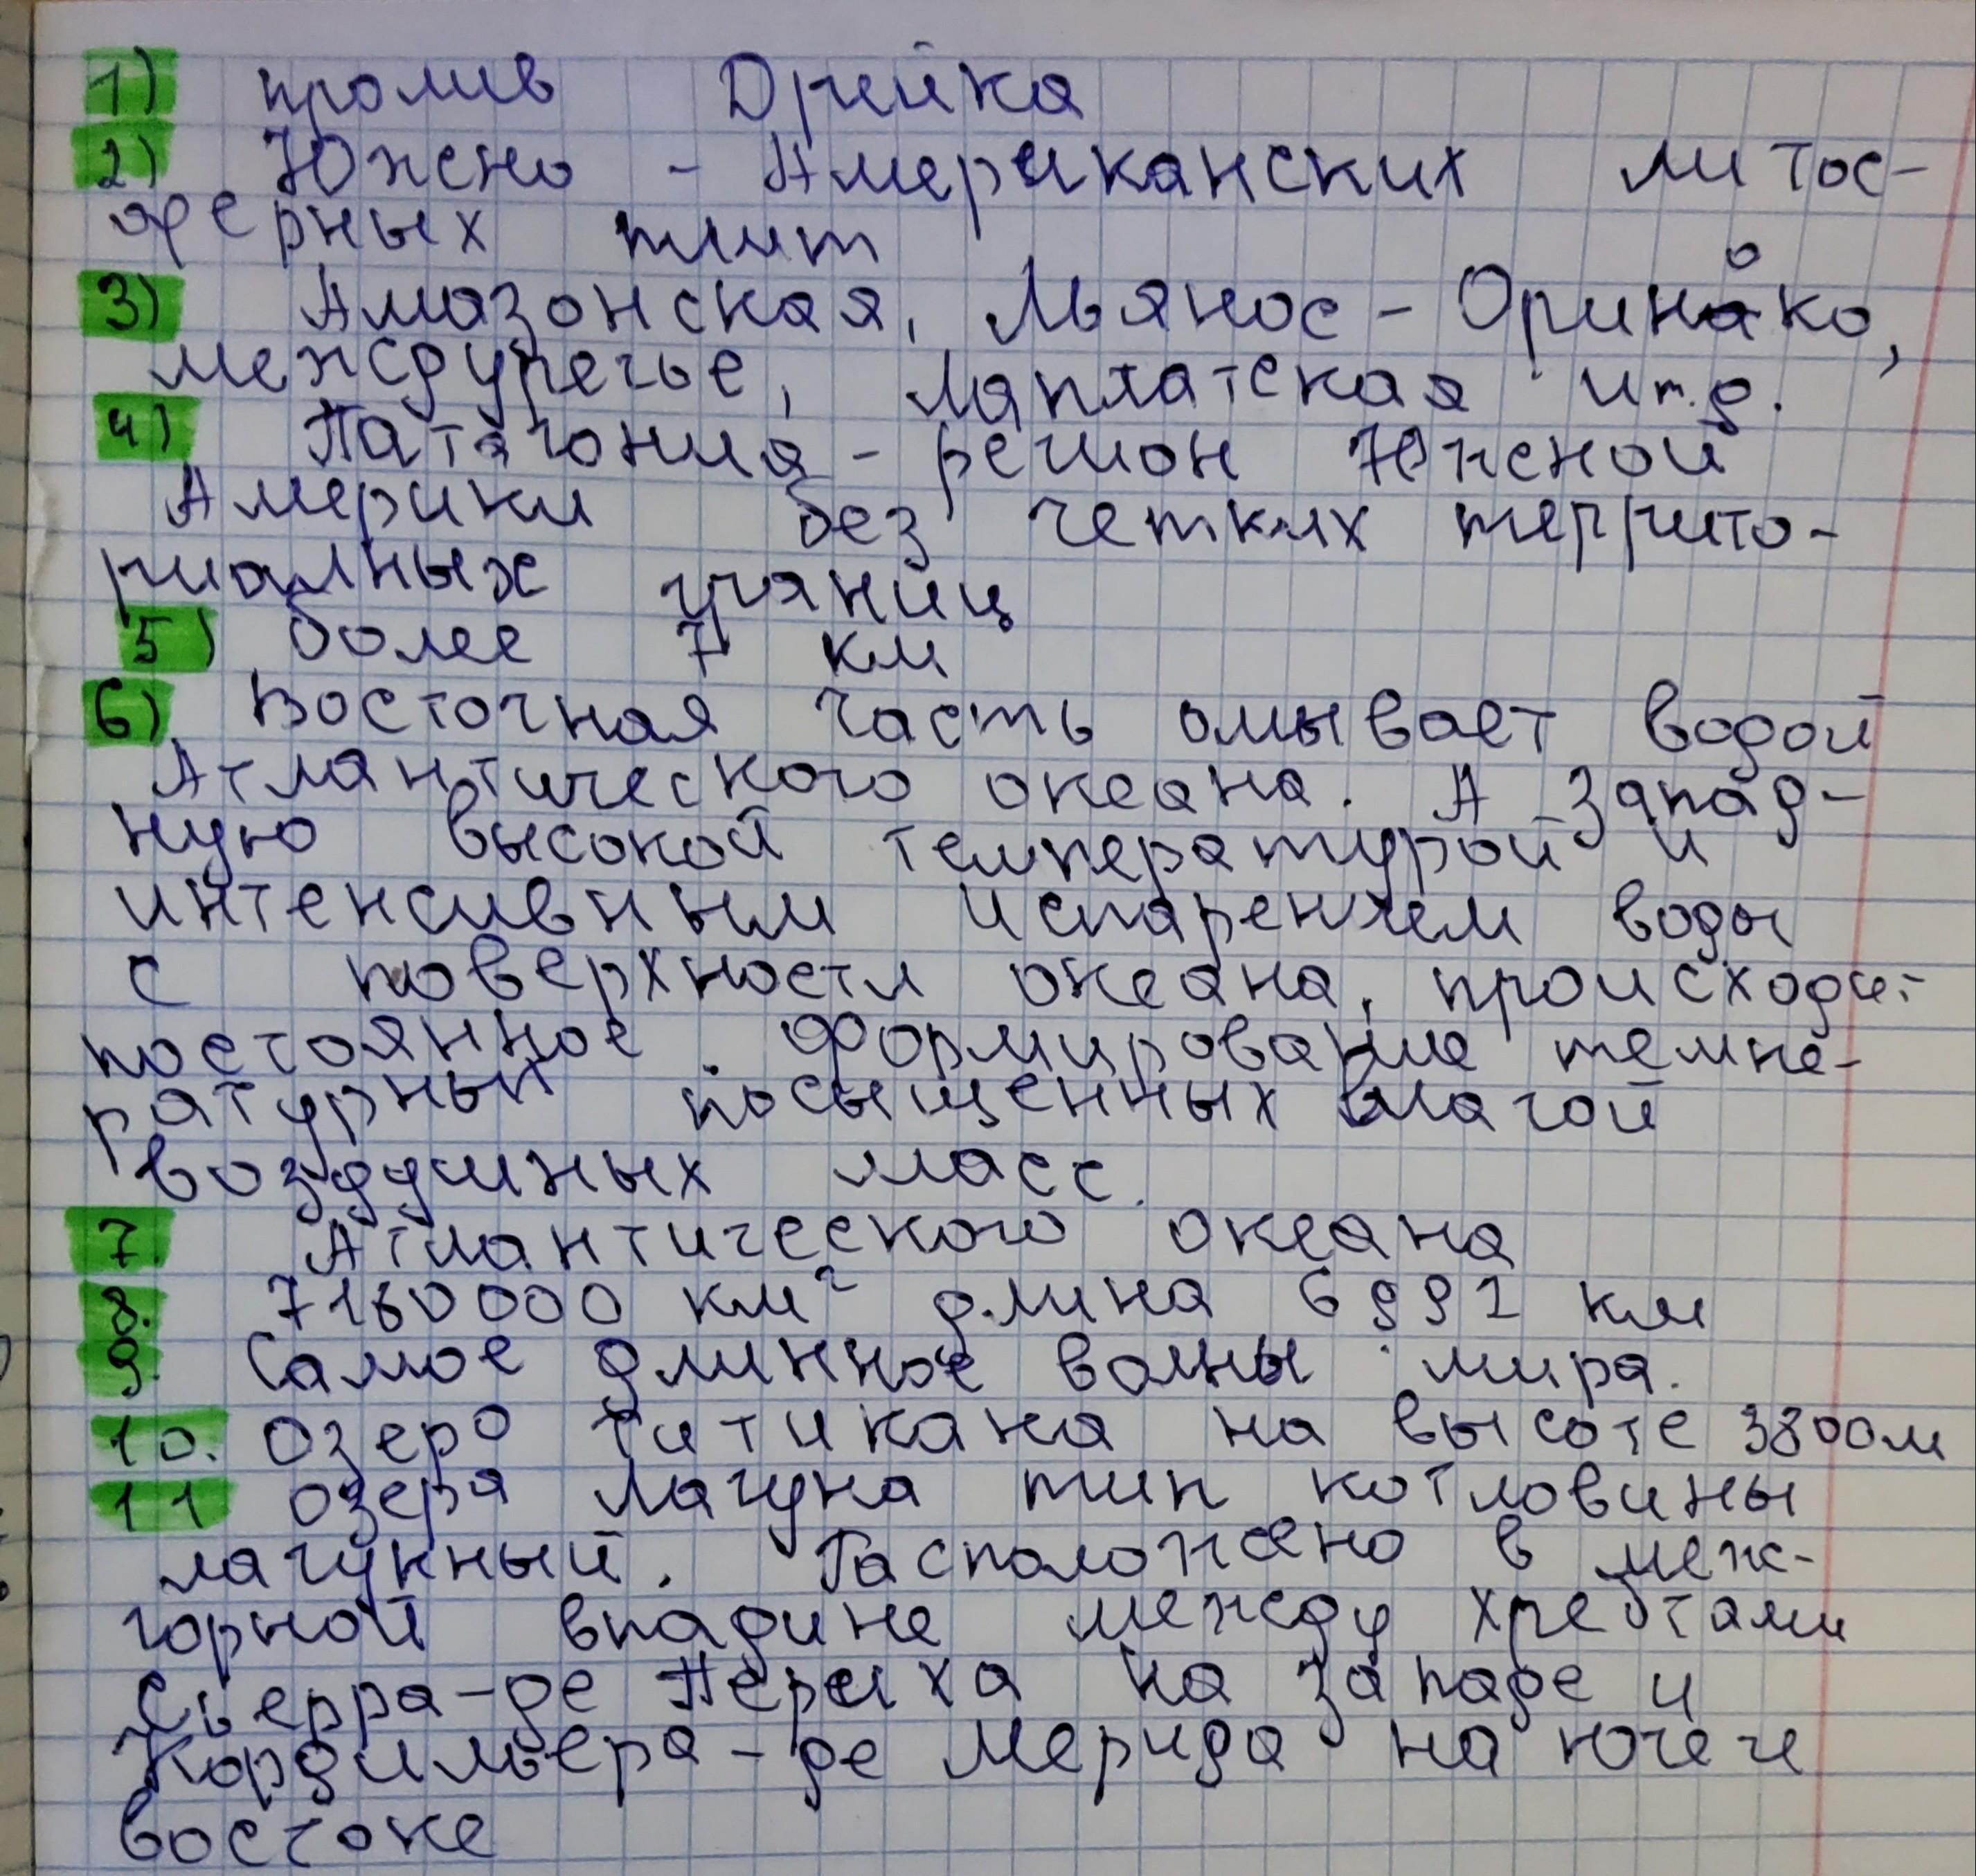 1) пролив Дрейка
2) Южно - Американских литос-
ферных плит
3) Амазонская, Льянос - Ориноко,
междуречье, Лаплатская и т.д.
4) Патагония - регион Южной
Америки без четких террито-
риалных границ
5) более 7 км
6) Восточная часть омывает водой
Атлантического океана. А запад-
ную высокой температурой и
интенсивным испарением воды
с поверхности океана, происходит
постоянное формирование темпе-
ратурных посыщенных влагой
воздушных масс.
7. Атлантического океана
8. 7180000 км² длина 6992 км
9. Самое длинное волны мира.
10. Озеро Титикана на высоте 3800м
11 озера Лагуна тип котловины
лагунный. Расположено в меж-
горной впадине между хребтами
Сьерра-де Периха на западе и
Кордильера-де Мерида на юге и
востоке